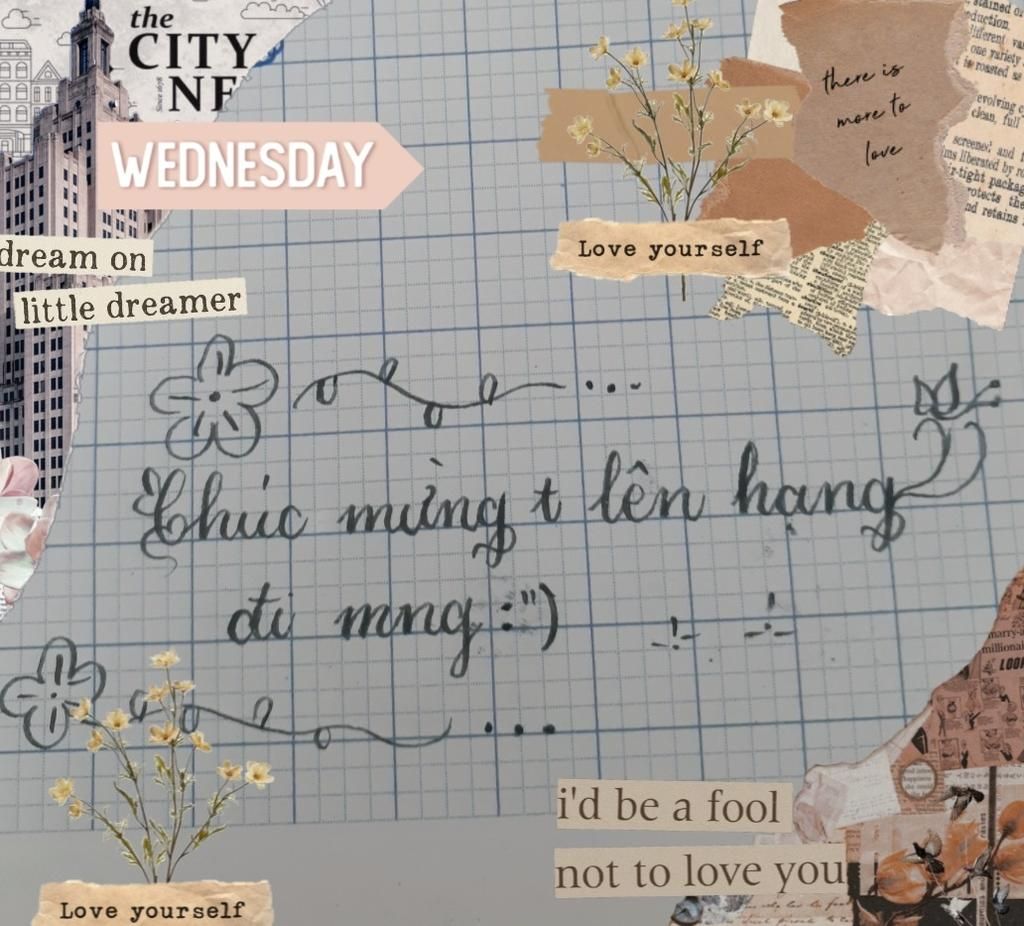 the
CITY
NE
Since 1678
WEDNESDAY
dream on
little dreamer
there is
more to
love
Love yourself
Chúc mừng t lên hạng
đi mng :")
Love yourself
i'd be a fool
not to love you
stained or
different
one variety
is roasted as
evolving
clean, full
screened and
liberated by
packag
protects the
nd retains
marry-
millionai
LOOK